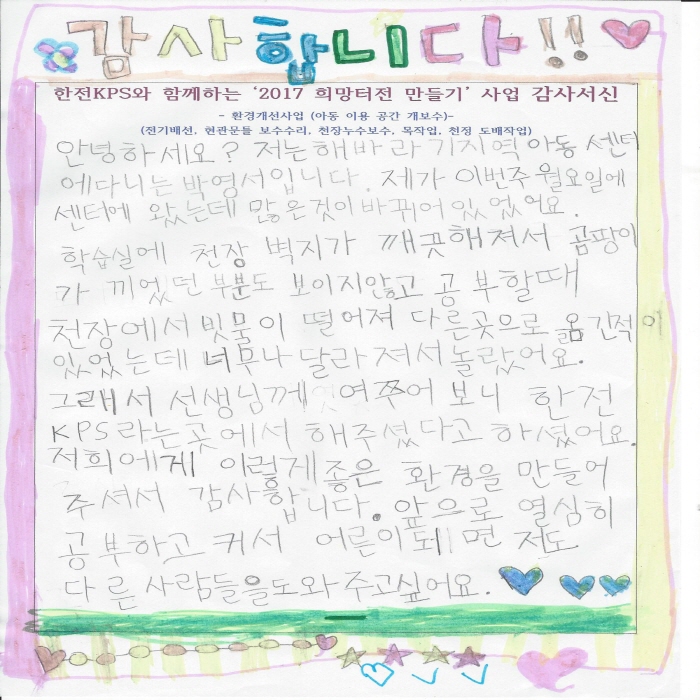 감사합니다!!
한전KPS와 함께하는 '2017 희망터전 만들기' 사업 감사서신
- 환경개선사업 (아동 이용 공간 개보수)-
(전기배선, 현관문틀 보수수리, 천장누수보수, 목작업, 천정 도배작업)
안녕하세요? 저는 해바라기지역아동센터
에다니는 박영서입니다. 제가 이번주 월요일에
센터에 왔는데 많은것이 바뀌어 있었어요.
학습실에 천장 벽지가 깨끗해져서 곰팡이
가 끼었던 부분도 보이지않고 공부할때
천장에서 빗물이 떨어져 다른곳으로 옮긴적이
있었는데 너무나 달라져서 놀랐어요.
그래서 선생님께 여쭈어 보니 한전
KPS라는곳에서 해주셨다고 하셨어요.
저희에게 이렇게좋은 환경을 만들어
주셔서 감사합니다. 앞으로 열심히
공부하고 커서 어른이되면 저도
다른사람들을도와주고싶어요.